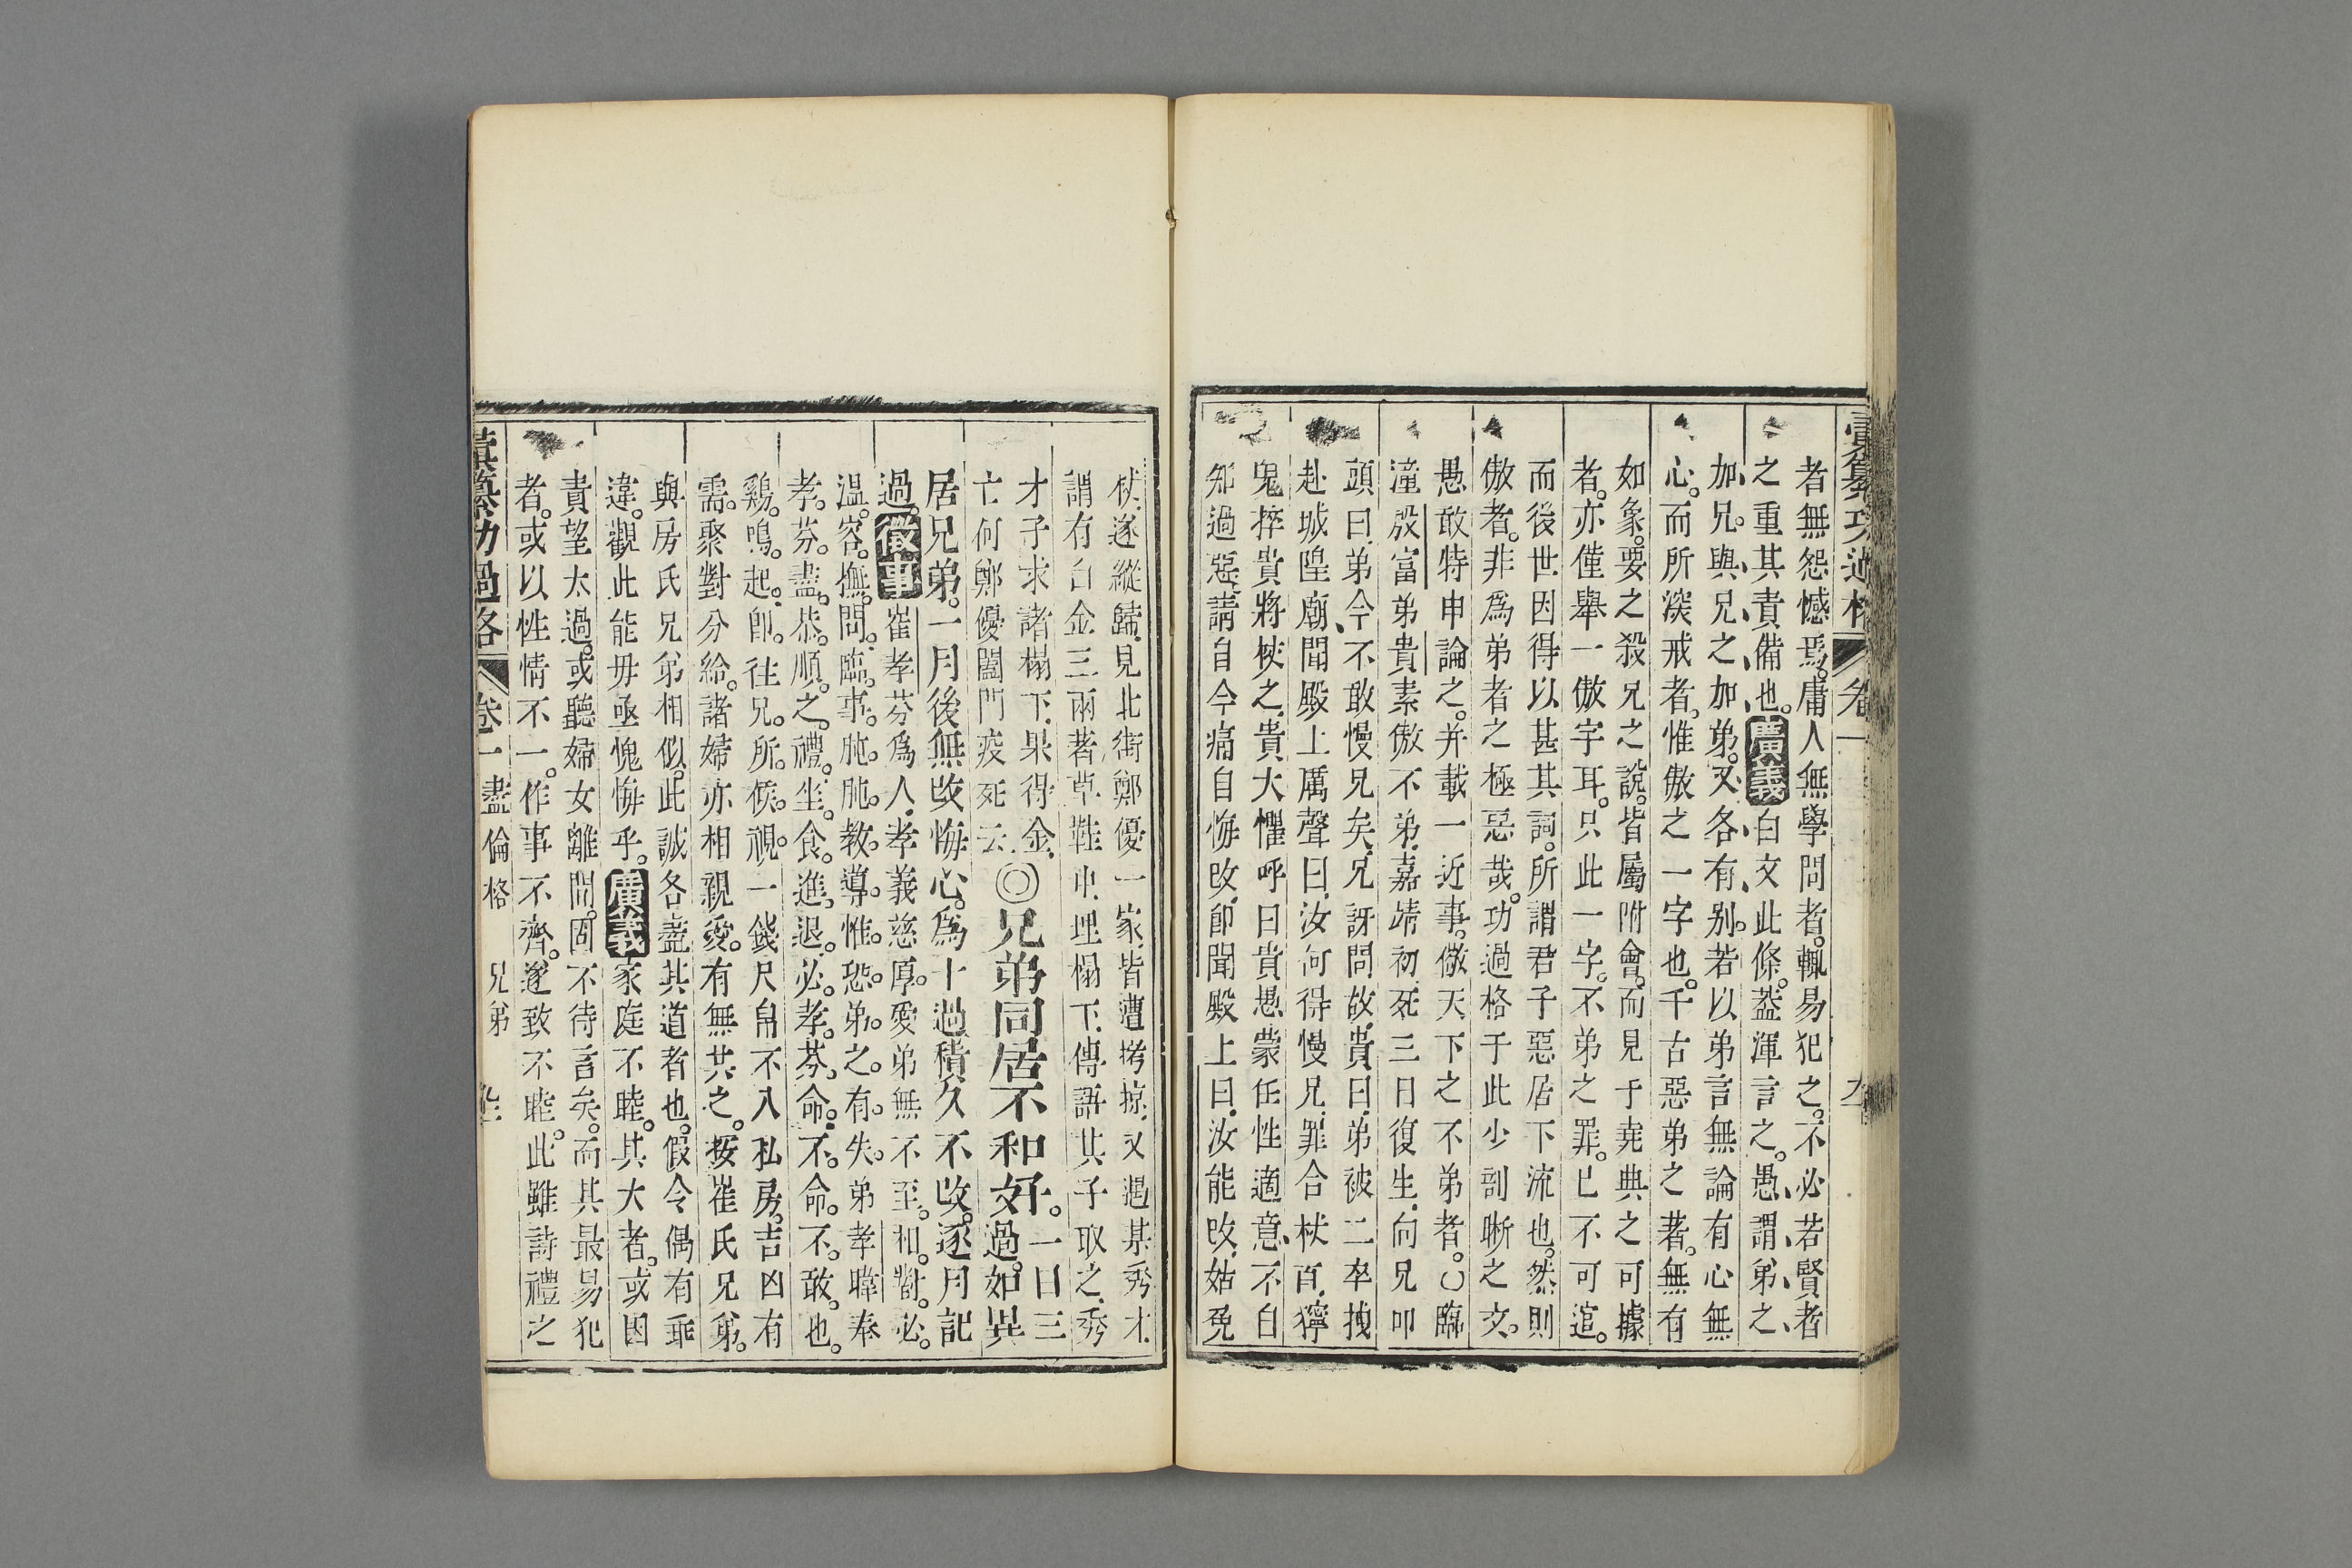 彙纂功過格 卷一
者無怨憾焉。庸人無學問者。輒易犯之。不必若賢者
之重其責備也。廣義白文此條。蓋渾言之。愚謂弟之
加兄。與兄之加弟。又各有别。若以弟言無論有心無
心。而所深戒者。惟傲之一字也。千古惡弟之著。無有
如象。要之殺兄之說。皆屬附會。而見于堯典之可據
者。亦僅舉一傲字耳。只此一字。不弟之罪。已不可逭。
而後世因得以甚其詞。所謂君子惡居下流也。然則
傲者。非爲弟者之極惡哉。功過格于此少剖晰之文。
愚敢特申論之。并載一近事。儆天下之不弟者。〇臨
潼殷富弟貴素傲不弟。嘉靖初死三日復生。向兄叩
頭曰。弟今不敢慢兄矣。兄訝問故。貴曰。弟被二卒拽
赴城隍廟。聞殿上厲聲曰。汝何得慢兄。罪合杖百。獰
鬼捽貴將杖之。貴大懼呼曰。貴愚蒙任性適意。不自
知過惡。請自今痛自悔改。卽聞殿上曰。汝能改。姑免
杖。遂縱歸。見北街鄭優一家。皆遭拷掠。又遇某秀才。
謂有白金三兩著草鞋中。埋榻下。傳語其子取之。秀
才子求諸榻下。果得金。
亡何鄭優闔門疫死云。
◎兄弟同居不和好。一日三過。如異
居兄弟。一月後無改悔心。爲十過積久不改。逐月記
過。徵事崔孝芬爲人。孝義慈厚。愛弟無不至。和。對。必。
溫。容。撫。問。臨。事。肫。肫。教。導。惟。恐。弟。之。有。失。弟孝暐奉
孝。芬。盡。恭。順。之。禮。坐。食。進。退。必。孝。芬。命。不。命。不。敢。也。
鷄。鳴。起。卽。往。兄。所。候。視。一錢尺帛不入私房。吉凶有
需。聚對分給。諸婦亦相親愛。有無共之。按崔氏兄弟。
與房氏兄弟相似。此誠各盡其道者也。假令偶有乖
違。觀此能毋亟愧悔乎。廣義家庭不睦。其大者。或因
責望太過。或聽婦女離間。固不待言矣。而其最易犯
者。或以性情不一。作事不齊。遂致不睦。此雖詩禮之
彙纂功過格 卷一 盡倫格 兄弟